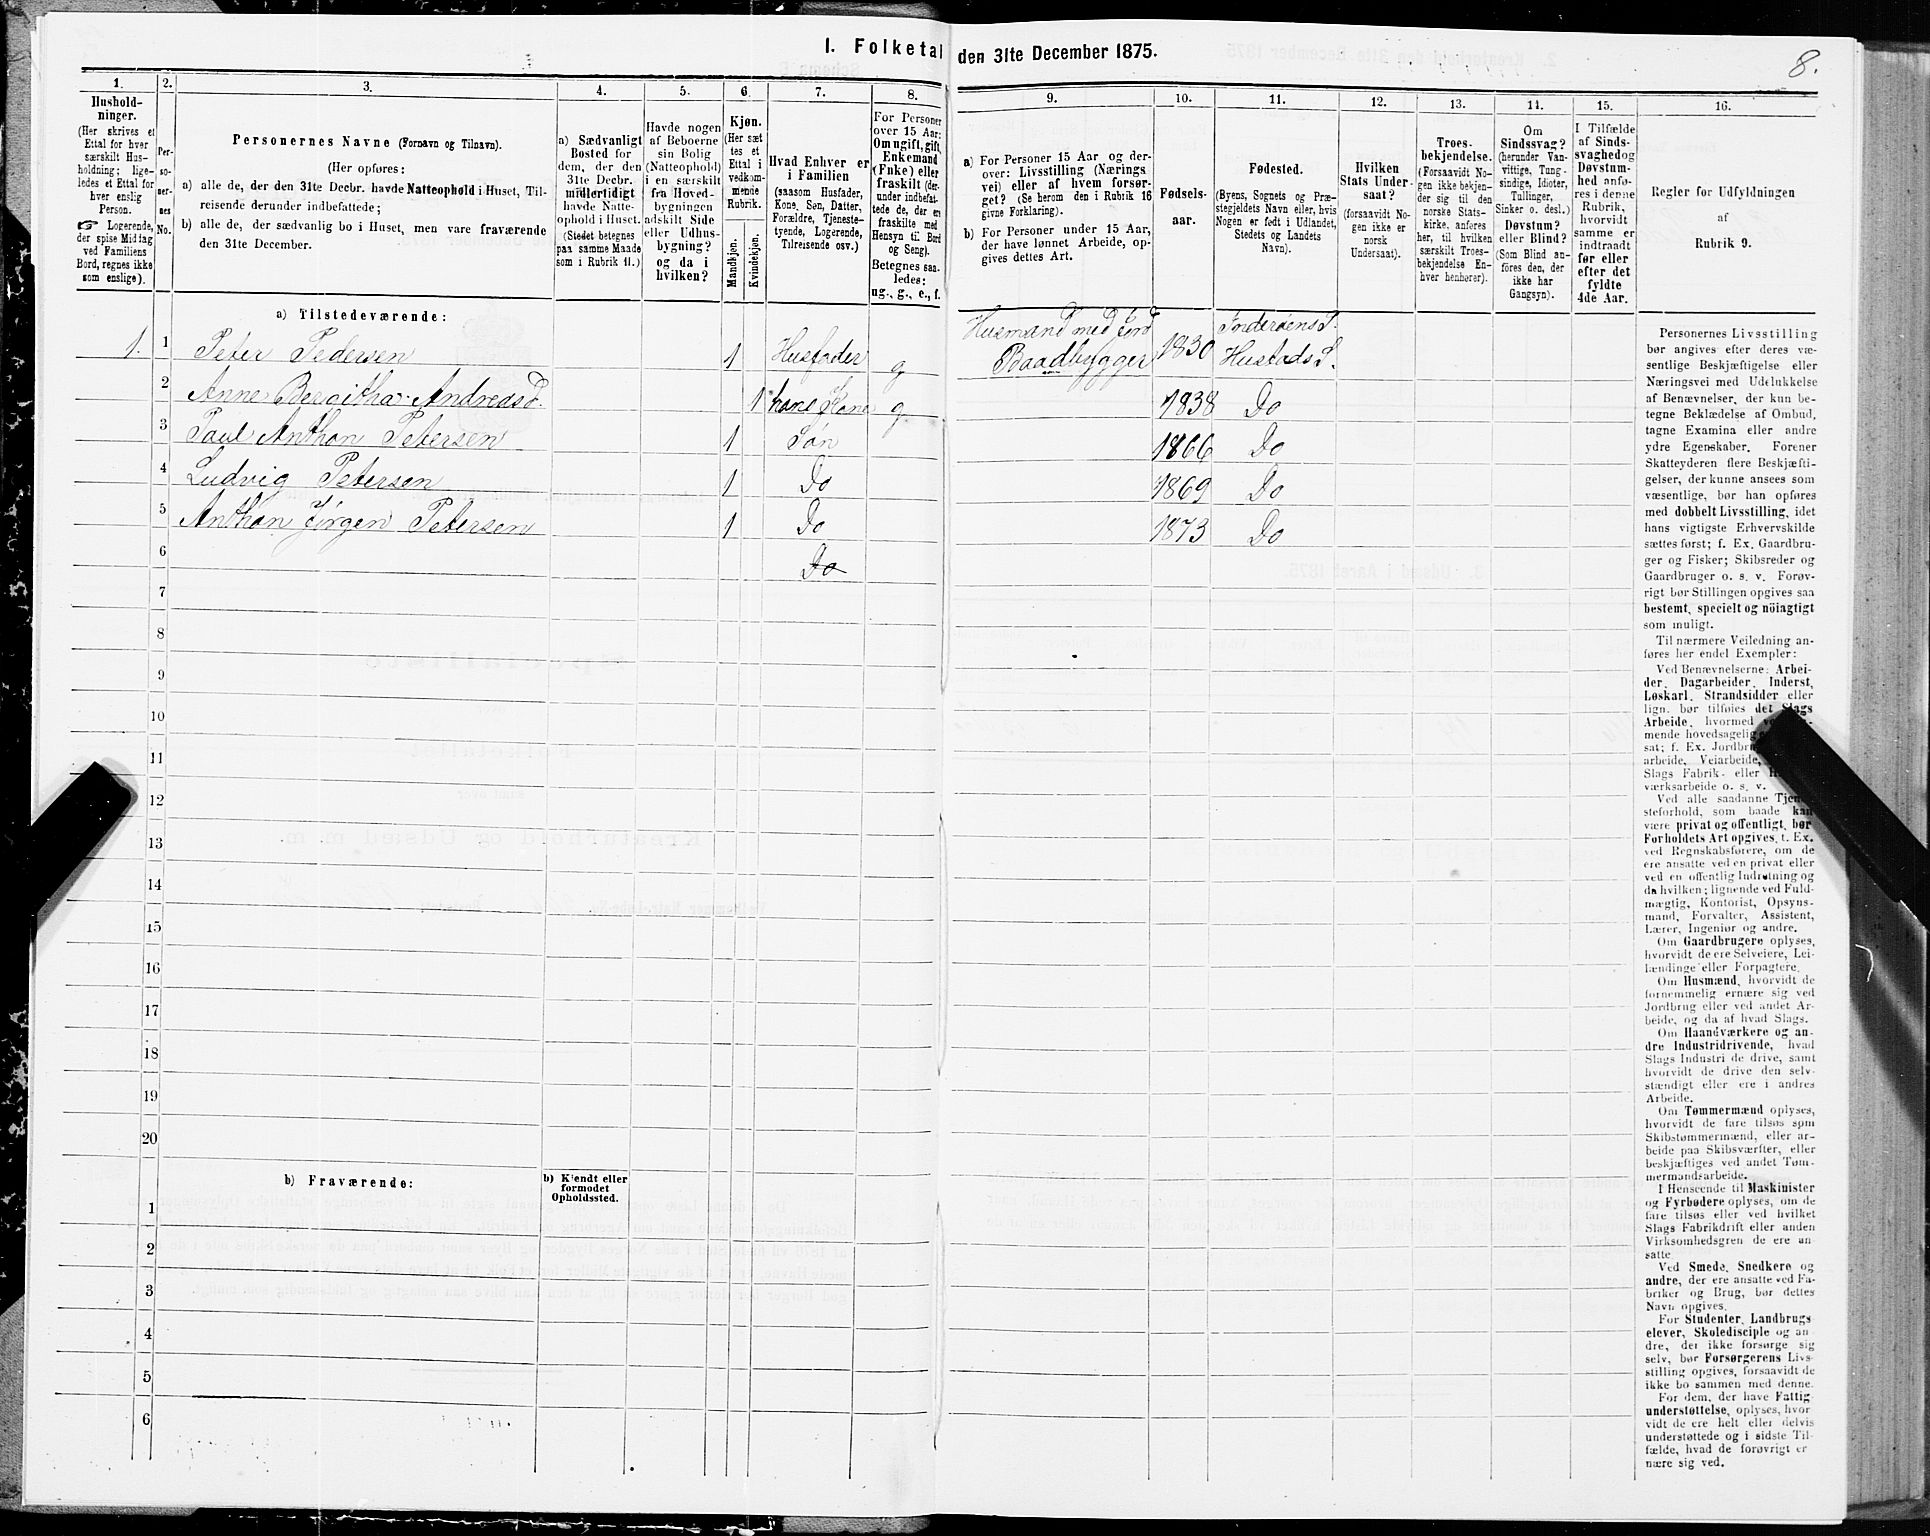 I. Folketal den 31te December 1875.
8.
1.
Hushold-
ninger.
(Her skrives et
Ettal for hver
særskilt Hus-
holdning; lige-
ledes et Ettal for
hver enslig
Person.
☞ Logerende,
der spise Middag
ved Familiens
Bord, regnes ikke
som enslige).
2.
Per-
so-
ner-
nes
No.
3.
Personernes Navne (Fornavn og Tilnavn).
(Her opføres:
a) alle de, der den 31te Decbr. havde Natteophold i Huset, Til-
reisende derunder indbefattede;
b) alle de, der sædvanlig bo i Huset, men vare fraværende
den 31te December.
4.
a) Sædvanligt
Bosted for
dem, der den
31te Decbr.
midlertidigt
havde Natte-
ophold i Huset.
(Stedet betegnes
paa samme Maade
som i Rubrik 11.)
5.
Havde nogen
af Beboerne
sin Bolig
(Natteophold)
i en særskilt
fra Hoved-
bygningen
adskilt Side
eller Udhus-
bygning?
og da i
hvilken?
6.
Kjøn.
(Her sæt
tes et
Ettal i
vedkom-
mende
Rubrik.
Mandkjøn.
Kvindekjøn.
7.
Hvad Enhver er
i Familien
(saasom Husfader,
Kone, Søn, Datter,
Forældre, Tjeneste-
tyende, Logerende,
Tilreisende osv.)
8.
For Personer
over 15 Aar:
Om ugift, gift,
Enkemand
(Enke) eller
fraskilt (der-
under indbefat-
tede de, der er
fraskilte med
Hensyn til Bord
og Seng).
Betegnes saa-
ledes:
ug., g., e., f.
9.
a) For Personer 15 Aar og der-
over: Livsstilling (Nærings
vei) eller af hvem forsør-
get? (Se herom den i Rubrik 16
givne Forklaring).
b) For Personer under 15 Aar,
der have lønnet Arbeide, op-
gives dettes Art.
10.
Fødsels-
aar.
11.
Fødested.
(Byens, Sognets og Præ-
stegjeldets Navn eller, hvis
Nogen er født i Udlandet,
Stedets og Landets
Navn).
12.
Hvilken
Stats Under-
saat?
(forsaavidt No-
gen ikke er
norsk
Undersaat).
13.
Troes-
bekjendelse.
(Forsaavidt No-
gen ikke bekjen-
der sig til den
norske Stats-
kirke, anføres
her, til hvilken
særskilt Troes-
bekjendelse En-
hver henhører).
14.
Om
Sindssvag?
(herunder Van-
vittige, Tung-
sindige, Idioter,
Tullinger,
Sinker o. desl.)
Døvstum?
eller Blind?
(Som Blind an-
føres den, der
ikke har
Gangsyn).
15.
I Tilfælde
af Sinds-
svaghed og
Døvstum-
hed anfø-
res i denne
Rubrik,
hvorvidt
samme er
indtraadt
før eller
efter det
fyldte
4de Aar.
16.
Regler for Udfyldningen
af
Rubrik 9.
a) Tilstedeværende:
1. 1 Peter Pedersen 1 Husfader g Husmand med Jord Baadbygger 1830 Inderøens P. Hustads S.
2 Anne Bergitha Andreasd. 1 hans Kone g 1838 Do
3 Paul Anthon Petersen 1 Søn 1866 Do
4 Ludvig Petersen 1 Do 1869 Do
5 Anthon Jørgen Petersen 1 Do 1873 Do
6 Do
7
8
9
10
11
12
13
14
15
16
17
18
19
20
b) Fraværende:
b) Kjendt eller
formodet
Opholdssted.
1
2
3
4
5
6
Personernes Livsstilling
bør angives efter deres væ-
sentlige Beskjæftigelse eller
Næringsvei med Udelukkelse
af Benævnelser, der kun be-
tegne Beklædelse af Ombud,
tagne Examina eller andre
ydre Egenskaber. Forener
Skatteyderen flere Beskjæfti-
gelser, der kunne ansees som
væsentlige, bør han opføres
med dobbelt Livsstilling, idet
hans vigtigste Erhvervskilde
sættes først; f. Ex. Gaardbru-
ger og Fisker; Skibsreder og
Gaardbruger o. s. v. Forøv-
rigt bør Stillingen opgives saa
bestemt, specielt og nöiagtigt
som muligt.
Til nærmere Veiledning an-
føres her endel Exempler:
Ved Benævnelserne: Arbei-
der, Dagarbeider, Inderst,
Løskarl, Strandsidder eller
lign. bør tilføies det Slags
Arbeide, hvormed
mende hovedsagelig
sat; f. Ex. Jordbr
arbeide, Veiarbeide,
Slags Fabrik- eller
værksarbeide o. s. v.
Ved alle saadanne Tjene
steforhold, som baade kan
være privat og offentligt, bør
Forholdets Art opgives, t. Ex.
ved Regnskabsførere, om de
ere ansatte ved en privat eller
ved en offentlig Indretning og
da hvilken; lignende ved Fuld-
mægtig, Kontorist, Opsyns-
mand, Forvalter, Assistent,
Lærer, Ingeniør og andre.
Om Gaardbrugere oplyses,
hvorvidt de ere Selveiere, Lei-
lændinge eller Forpagtere.
Om Husmænd, hvorvidt de
fornemmelig ernære sig ved
Jordbrug eller ved andet Ar-
beide, og da af hvad Slags.
Om Haandværkere og an-
dre Industridrivende, hvad
Slags Industri de drive, samt
hvorvidt de drive den selv-
stændigt eller ere i andres
Arbeide.
Om Tømmermænd oplyses,
hvorvidt de fare tilsøs som
Skibstømmermænd, eller ar-
beide paa Skibsværfter, eller
beskjæftiges ved andet Tøm-
mermandsarbeide.
I Henseende til Maskinister
og Fyrbødere oplyses, om de
fare tilsøs eller ved hvilket
Slags Fabrikdrift eller anden
Virksomhedsgren de ere an-
satte.
Ved Smede, Snedkere og
andre, der ere ansatte ved Fa-
briker og Brug, bør dettes
Navn opgives.
For Studenter, Landbrugs
elever, Skoledisciple og an-
dre, der ikke forsørge sig
selv, bør Forsørgerens Livs-
stilling opgives, forsaavidt de
ikke bo sammen med denne.
For dem, der have Fattig
understøttelse, oplyses, hvor
vidt de ere helt eller delvis
understøttede og i sidste Til-
fælde, hvad de forøvrigt er
nære sig ved.